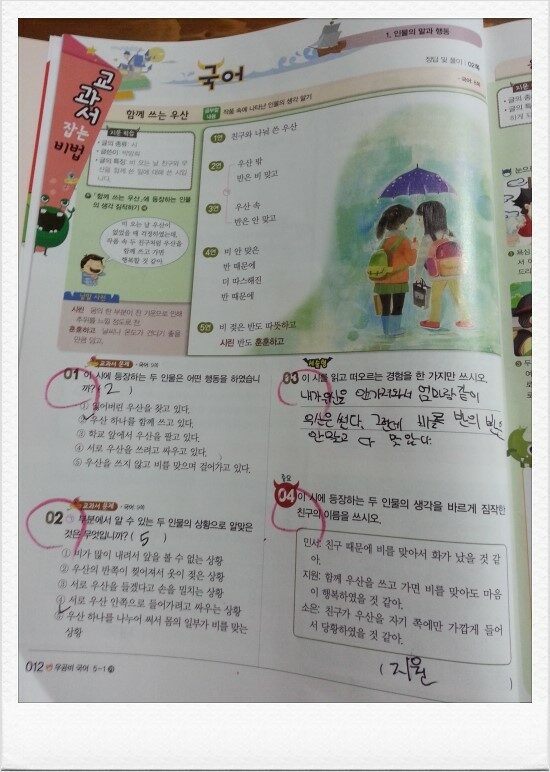 1. 인물의 말과 행동
정답 및 풀이 | 02쪽
교과서 잡는 비법
국어
· 국어 5쪽
함께 쓰는 우산
작품 속에 나타난 인물의 생각 알기
지문 학습
• 글의 종류: 시
• 글쓴이: 박방희
• 글의 특징: 비 오는 날 친구와 우산을 함께 쓴 일에 대해 쓴 시입니다.
「함께 쓰는 우산」에 등장하는 인물의 생각 짐작하기
비 오는 날 우산이
없었을 때 걱정하였는데,
작품 속 두 친구처럼 우산을
함께 쓰고 가면
행복할 것 같아.
낱말 사전
시린 몸의 한 부분이 찬 기운으로 인해
추위를 느낄 정도로 찬
훈훈하고 날씨나 온도가 견디기 좋을
만큼 덥고.
1연 친구와 나눠 쓴 우산
2연 우산 밖
반은 비 맞고
3연 우산 속
반은 안 맞고
4연 비 안 맞은
반 때문에
더 따스해진
반 때문에
5연 비 젖은 반도 따뜻하고
시린 반도 훈훈하고
교과서 문제 · 국어 5쪽
01 이 시에 등장하는 두 인물은 어떤 행동을 하였습니
까? ( 2 )
① 잃어버린 우산을 찾고 있다.
② 우산 하나를 함께 쓰고 있다.
③ 학교 앞에서 우산을 팔고 있다.
④ 서로 우산을 쓰려고 싸우고 있다.
⑤ 우산을 쓰지 않고 비를 맞으며 걸어가고 있다.
교과서 문제 · 국어 5쪽
02 부분에서 알 수 있는 두 인물의 상황으로 알맞은
것은 무엇입니까? ( 5 )
① 비가 많이 내려서 앞을 볼 수 없는 상황
② 우산의 반쪽이 찢어져서 옷이 젖은 상황
③ 서로 우산을 들겠다고 손을 밀치는 상황
④ 서로 우산 안쪽으로 들어가려고 싸우는 상황
⑤ 우산 하나를 나누어 써서 몸의 일부가 비를 맞는
상황
서술형
03 이 시를 읽고 떠오르는 경험을 한 가지만 쓰시오.
내가 우산을 안가져와서 엄마랑 같이
우산은 썼다. 그런데 반의 반은
안맞고 다 맞았다.
중요
04 이 시에 등장하는 두 인물의 생각을 바르게 짐작한
친구의 이름을 쓰시오.
민서: 친구 때문에 비를 맞아서 화가 났을 것 같
아.
지원: 함께 우산을 쓰고 가면 비를 맞아도 마음
이 행복하였을 것 같아.
소은: 친구가 우산을 자기 쪽에만 가깝게 들어
서 당황하였을 것 같아.
( 지원 )
012 우공비 국어 5-1